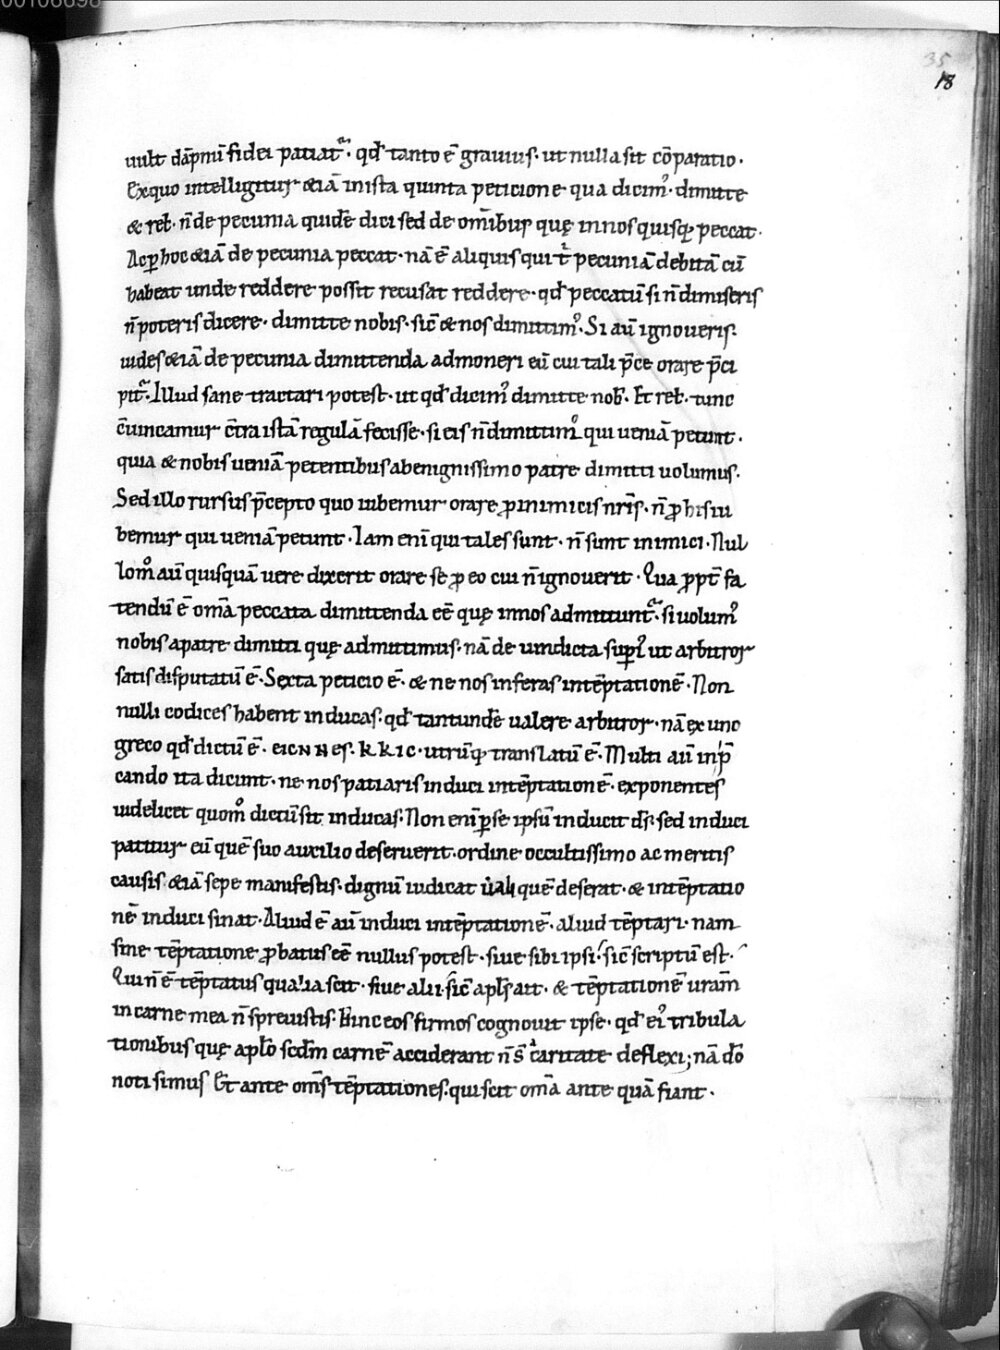 00108698
35
18
uult dāpnū fidei patiat᷑. qđ tanto ē grauius. ut nulla sit cōparatio.
Ex quo intelligitur &iā in ista quinta peticione qua dicim᷒. dimitte
& rel. n̄ de pecunia quidē dici sed de om̄ibus quę in nos quisq; peccat.
Ac ꝑ hoc &iā de pecunia peccat. nā ē aliquis qui t᷑ pecuniā debitā cū
habeat unde reddere possit recusat reddere. qđ peccatū si n̄ dimiseris
n̄ poteris dicere. dimitte nobis. sic̄ & nos dimittim᷒. Si aū ignoueris.
uides &iā de pecunia dimittenda admoneri eū cui tali p̄ce orare p̄ci
pit᷑. Illud sane tractari potest. ut qđ dicim᷒ dimitte nob. Et rel. tunc
c̄uincamur c̄tra istā regulā fecisse. si eis n̄ dimittim᷒ qui ueniā petunt.
quia & nobis ueniā petentibus a benignissimo patre dimitti uolumus.
Sed illo rursus p̄cepto quo iubemur orare ꝓ inimicis nr̄is. n̄ ꝓ his iu
bemur qui ueniā petunt. Iam eni᷑ qui tales sunt. n̄ sunt inimici. Nul
lom᷒ aū quisquā uere dixerit orare se ꝓ eo cui n̄ ignouerit. Qua ꝓpt̄ fa
tendū ē om̄a peccata dimittenda eē quę in nos admittunt᷑. si uolum᷒
nobis a patre dimitti quę admittimus. nā de uindicta supi᷒ ut arbitror
satis disputatū ē. Sexta peticio ē. & ne nos inferas in tēptationē. Non
nulli codices habent inducas. qđ tantundē ualere arbitror. nā ex uno
greco qđ dictū ē. EICNHES. KKIC. utrūq; translatū ē. Multi aū in p̄
cando ita dicunt. ne nos patiaris induci in tēptationē. exponentes
uidelicet quom᷒ dictū sit inducas. Non eni᷑ ꝑ se ipsū inducit dš. sed induci
patitur eū quē suo auxilio deseruerit. ordine occultissimo ac meritis
causis. &iā sepe manifestis. dignū iudicat quē deserat. & in tēptatio
nē induci sinat. Aliud ē aū induci in tēptationē. aliud tēptari. nam
sine tēptatione ꝓbatus eē nullus potest. siue sibi ipsi. sic̄ scriptū est.
Qui n̄ ē tēptatus qualia scit. siue alii. sic̄ aplš ait. & tēptationē uram̄
in carne mea n̄ spreuistis. Hinc eos firmos cognouit ipse. qđ ei᷒ tribula
tionibus quę aplo scdm carnē acciderant n̄ s̄ a caritate deflexi; nā dō
noti simus & ante om̄s tēptationes. qui scit om̄a ante quā fiant.